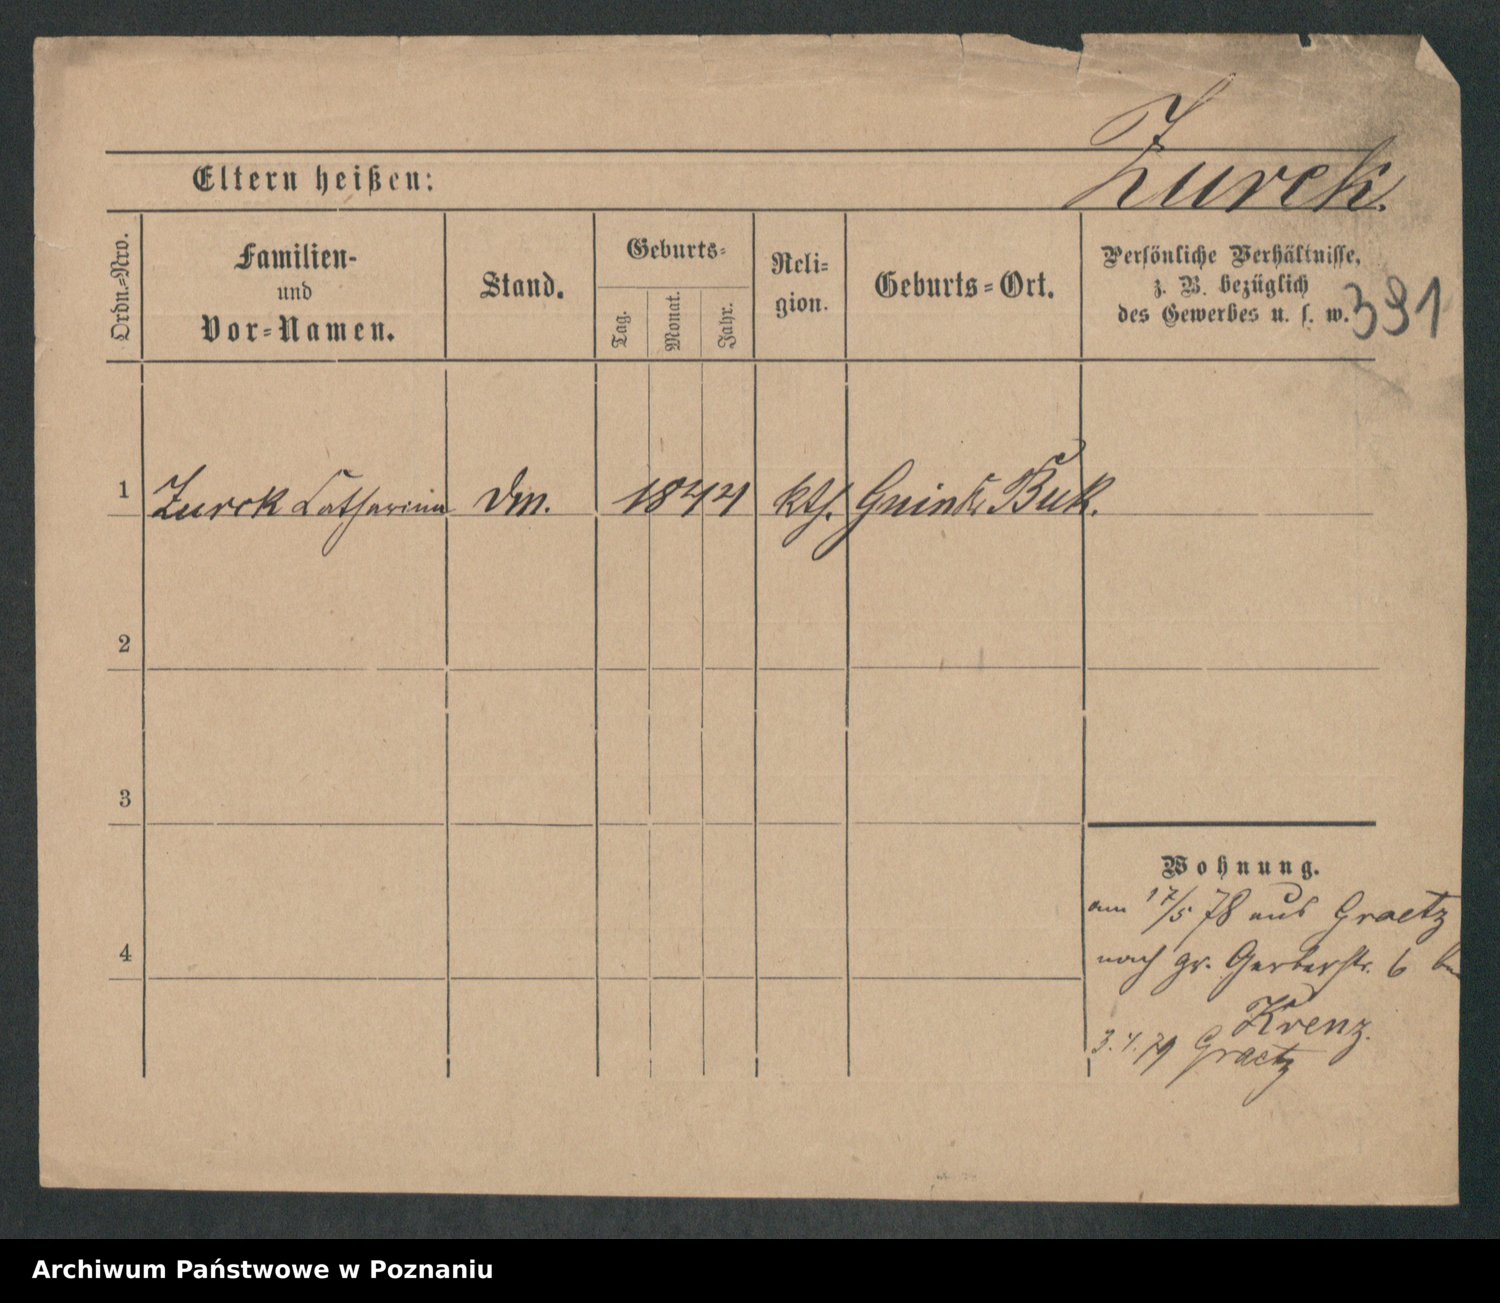 Zurek.
Eltern heißen:
Ordn.-Nro.
Familien-
und
Vor-Namen.
Stand.
Geburts-
Tag.
Monat.
Jahr.
Reli-
gion.
Geburts-Ort.
Persönliche Verhältnisse,
z. B. bezüglich
des Gewerbes u. s. w.
391
1 Zurek Catharina Dm. 1844 kth. Buk.
2
3
4
Wohnung.
am 17/5 78 aus Graetz
nach gr. Gerberstr. 6
Krenz.
3.4.79 Graetz
Archiwum Państwowe w Poznaniu